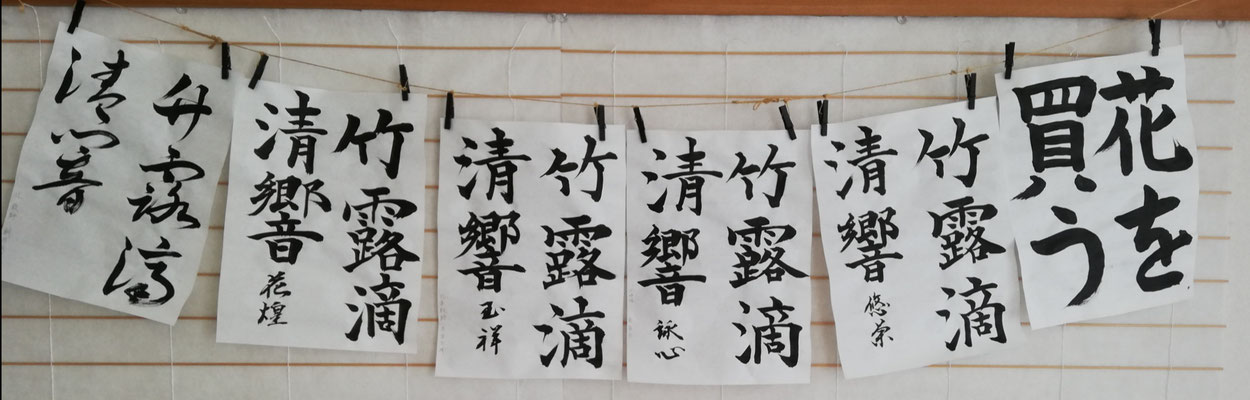 花を
買う
竹露滴
清響
悠栄
竹露滴
清響
詠心
竹露滴
清響
玉祥
竹露滴
清響
花煌
竹露滴
清響